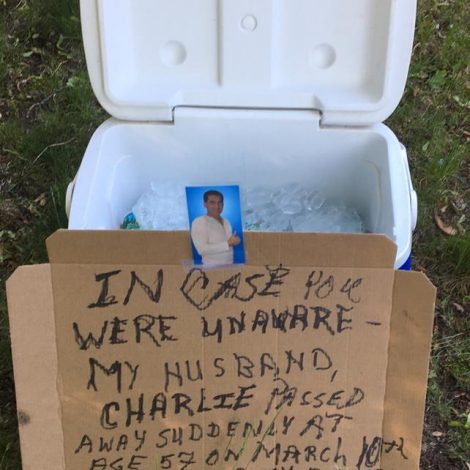 IN CASE YOU
WERE UNAWARE -
MY HUSBAND,
CHARLIE PASSED
AWAY SUDDENLY AT
AGE 57 ON MARCH 10TH